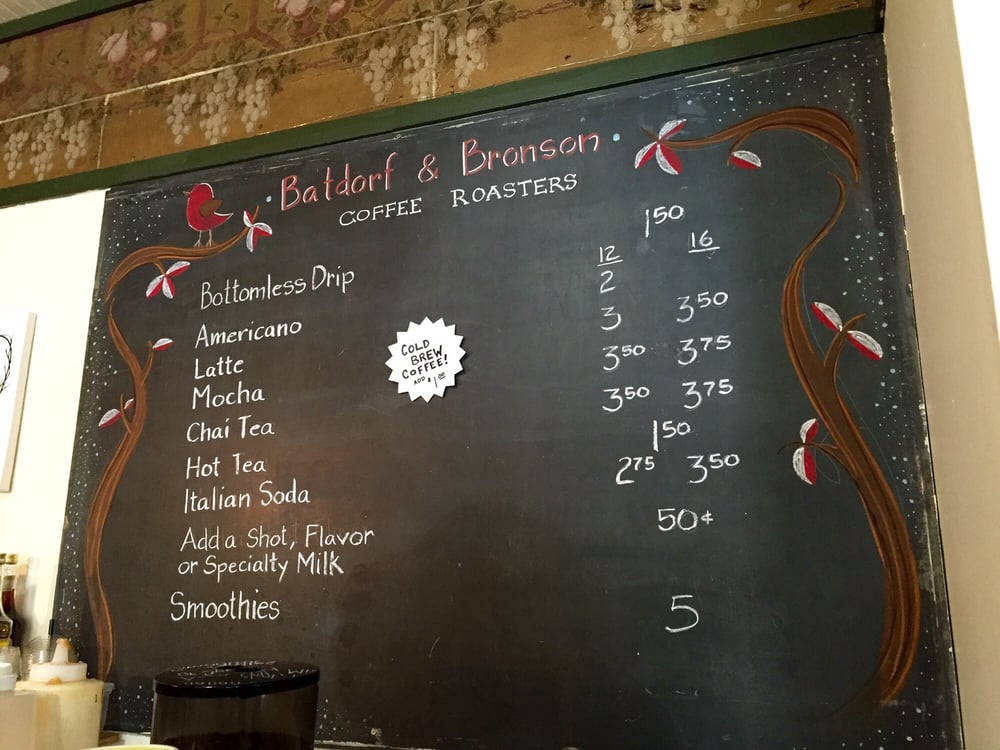 Batdorf & Bronson
COFFEE ROASTERS
Bottomless Drip 1 50
12 16
Americano 2
Latte 3 3 50
Mocha 3 50 3 75
Chai Tea 3 50 3 75
Hot Tea 1 50
Italian Soda 2 75 3 50
Add a Shot, Flavor 50¢
or Specialty Milk
Smoothies 5
COLD
BREW
COFFEE!
ADD $1 00